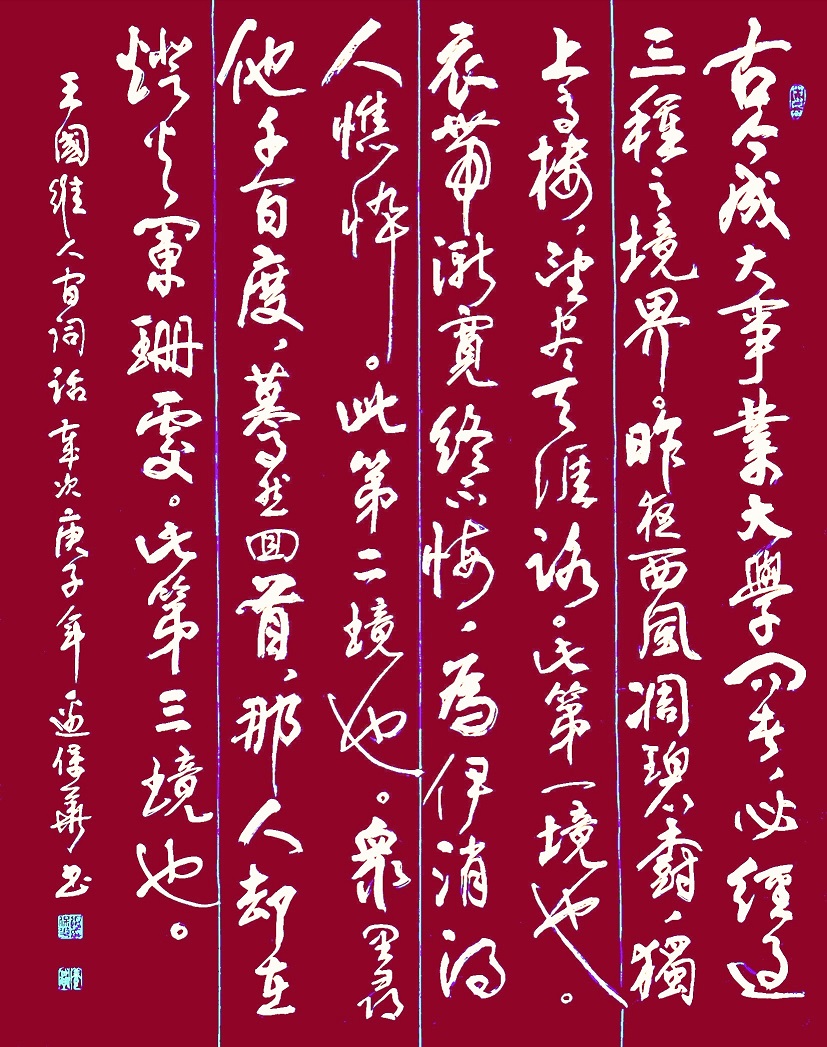 古今成大事業大學問者、必經過
三種之境界。昨夜西風凋碧樹、獨
上高樓、望尽天涯路。此第一境也。
衣帶漸寬終不悔、為伊消得
人憔悴。此第二境也。眾里尋
他千百度、驀然回首、那人却在
燈火闌珊處。此第三境也。
王國維人間詞話 歲次庚子年 保華書